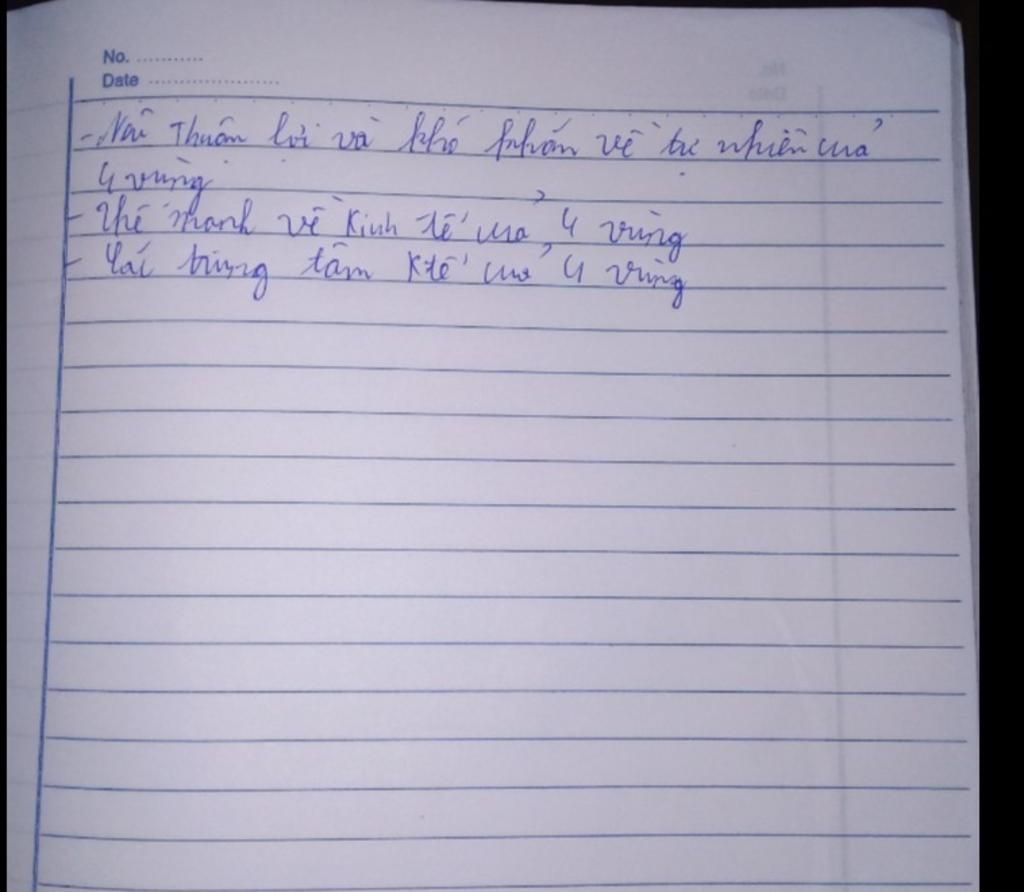 No. ...........
Date .....................
- Nêu Thuận lợi và khó khăn về tự nhiên của
4 vùng
- Thế mạnh về Kinh tế của 4 vùng
- Các trung tâm Ktế của 4 vùng